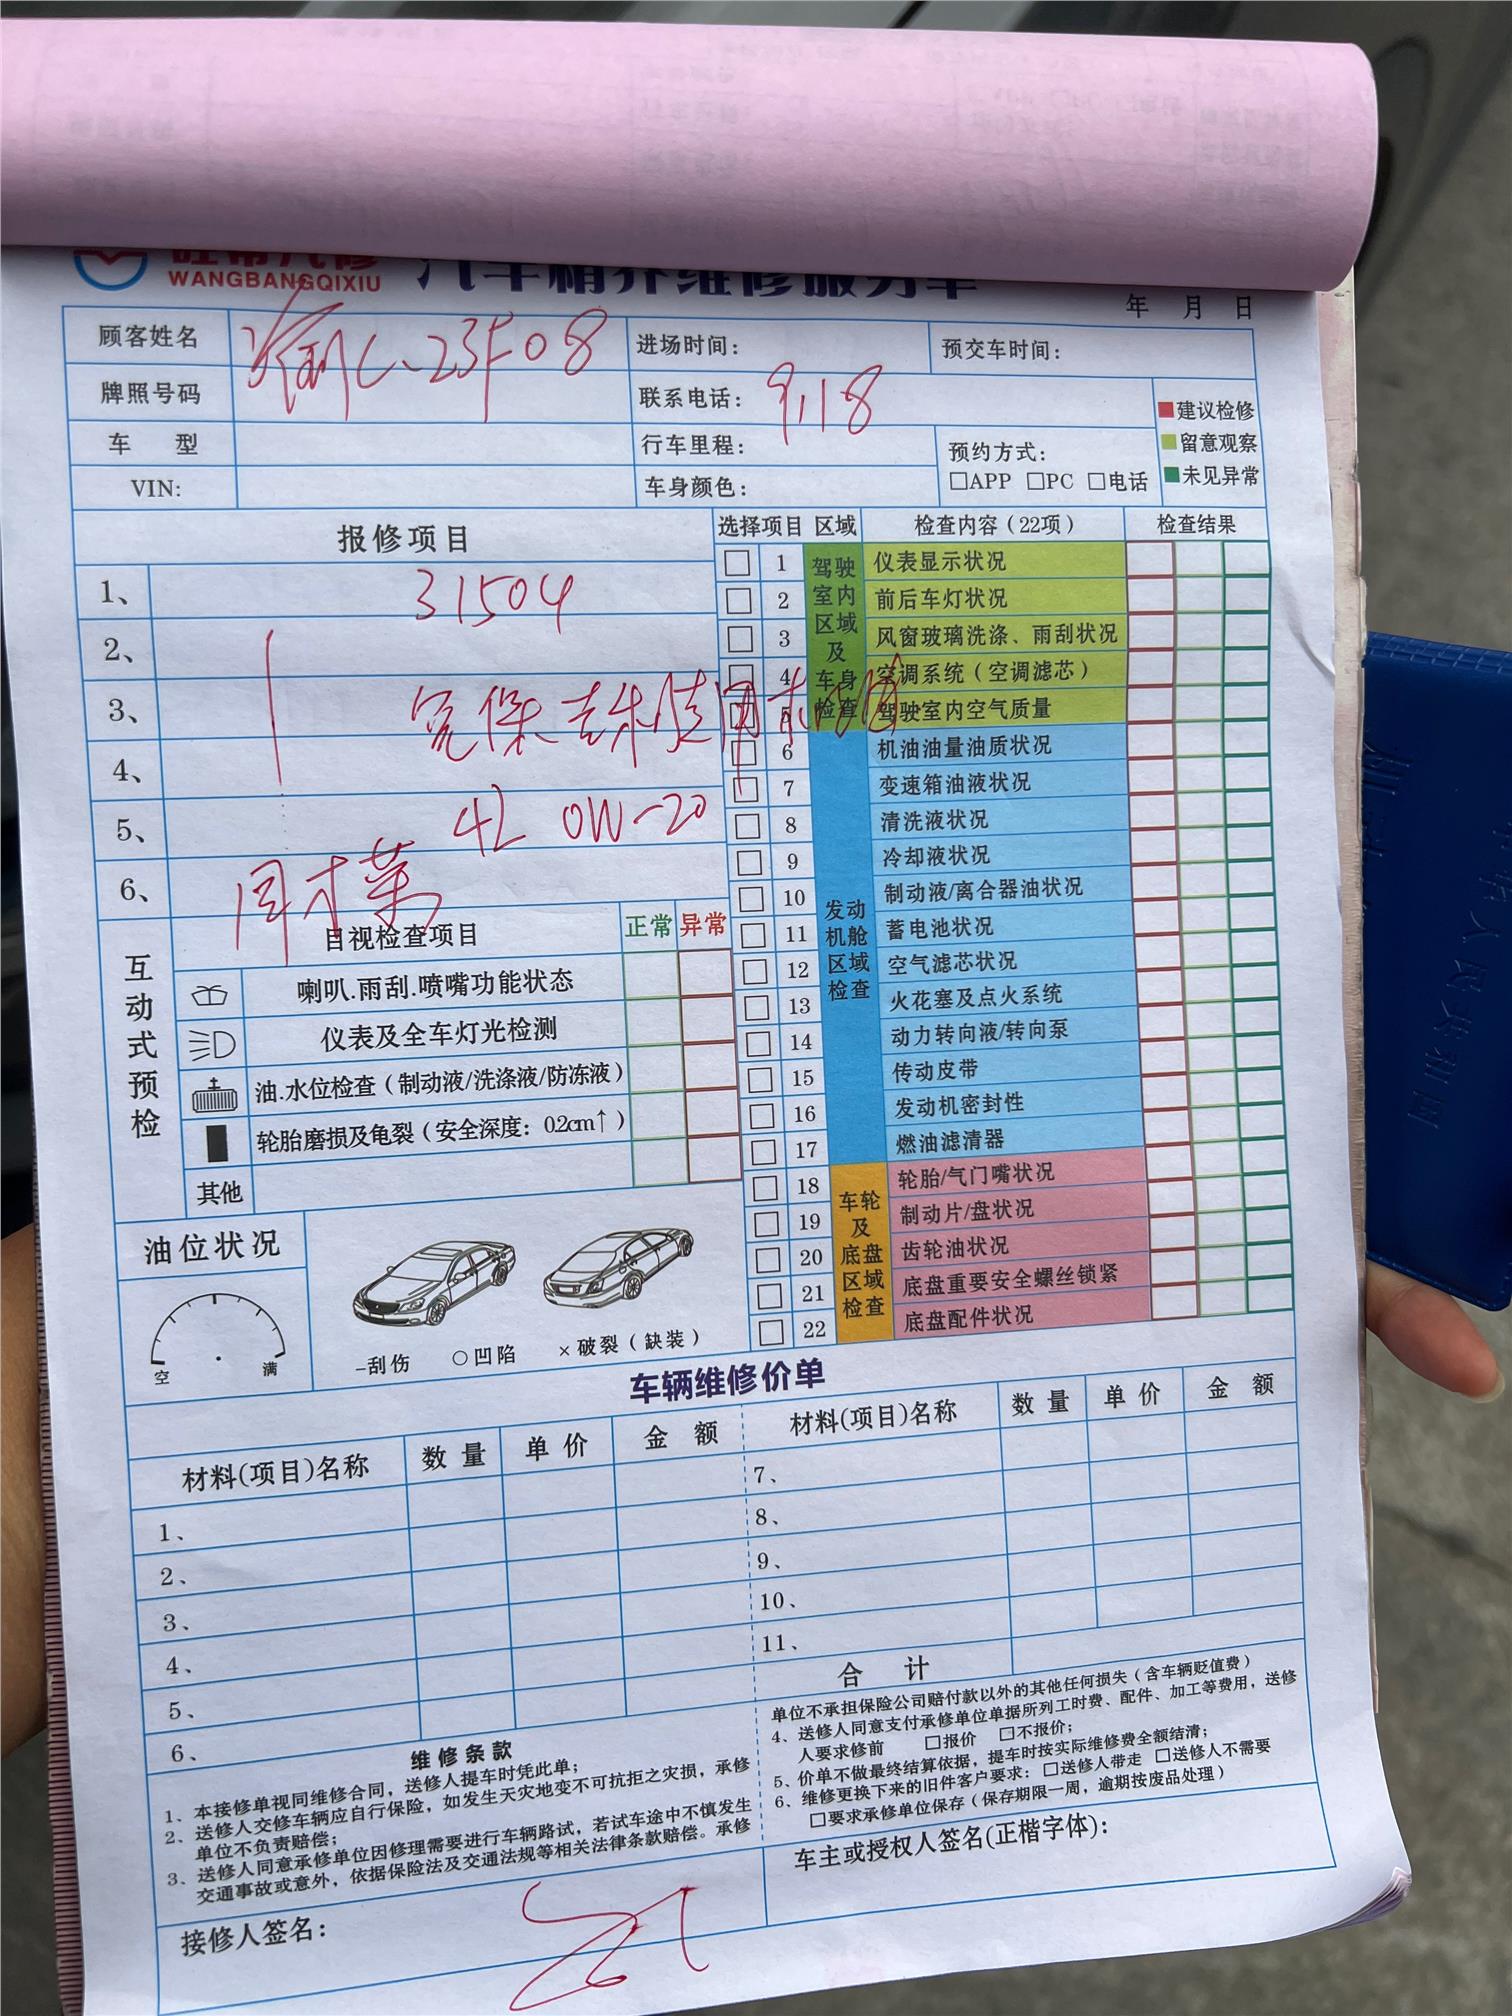 WANGBANGQIXIU
年 月 日
顾客姓名
渝C·23F08
进场时间：
预交车时间：
牌照号码
联系电话：
9.18
■建议检修
■留意观察
■未见异常
车 型
行车里程：
预约方式：
□APP □PC □电话
VIN:
车身颜色：
报修项目
选择项目 区域 检查内容（22项） 检查结果
1、 31504
2、
3、
4、
5、 4L 0W-20
6、 周才菊
□ 1 驾驶室内区域及车身检查 仪表显示状况
□ 2 前后车灯状况
□ 3 风窗玻璃洗涤、雨刮状况
□ 4 空调系统（空调滤芯）
□ 5 驾驶室内空气质量
□ 6 发动机舱区域检查 机油油量油质状况
□ 7 变速箱油液状况
□ 8 清洗液状况
□ 9 冷却液状况
□ 10 制动液/离合器油状况
□ 11 蓄电池状况
□ 12 空气滤芯状况
□ 13 火花塞及点火系统
□ 14 动力转向液/转向泵
□ 15 传动皮带
□ 16 发动机密封性
□ 17 燃油滤清器
□ 18 车轮及底盘区域检查 轮胎/气门嘴状况
□ 19 制动片/盘状况
□ 20 齿轮油状况
□ 21 底盘重要安全螺丝锁紧
□ 22 底盘配件状况
互动式预检
目视检查项目 正常 异常
喇叭.雨刮.喷嘴功能状态
仪表及全车灯光检测
油.水位检查（制动液/洗涤液/防冻液）
轮胎磨损及龟裂（安全深度：0.2cm↑）
其他
油位状况
空 满
-刮伤 ○凹陷 ×破裂（缺装）
车辆维修价单
材料(项目)名称 数量 单价 金额 材料(项目)名称 数量 单价 金额
1、
2、
3、
4、
5、
6、
7、
8、
9、
10、
11、
合 计
维修条款
1、本接修单视同维修合同，送修人提车时凭此单；
2、送修人交修车辆应自行保险，如发生天灾地变不可抗拒之灾损，承修
单位不负责赔偿；
3、送修人同意承修单位因修理需要进行车辆路试，若试车途中不慎发生
交通事故或意外，依据保险法及交通法规等相关法律条款赔偿。承修
单位不承担保险公司赔付款以外的其他任何损失（含车辆贬值费）
4、送修人同意支付承修单位单据所列工时费、配件、加工等费用，送修
人要求修前 □报价 □不报价；
5、价单不做最终结算依据，提车时按实际维修费全额结清；
6、维修更换下来的旧件客户要求：□送修人带走 □送修人不需要
□要求承修单位保存（保存期限一周，逾期按废品处理）
接修人签名：
车主或授权人签名(正楷字体)：